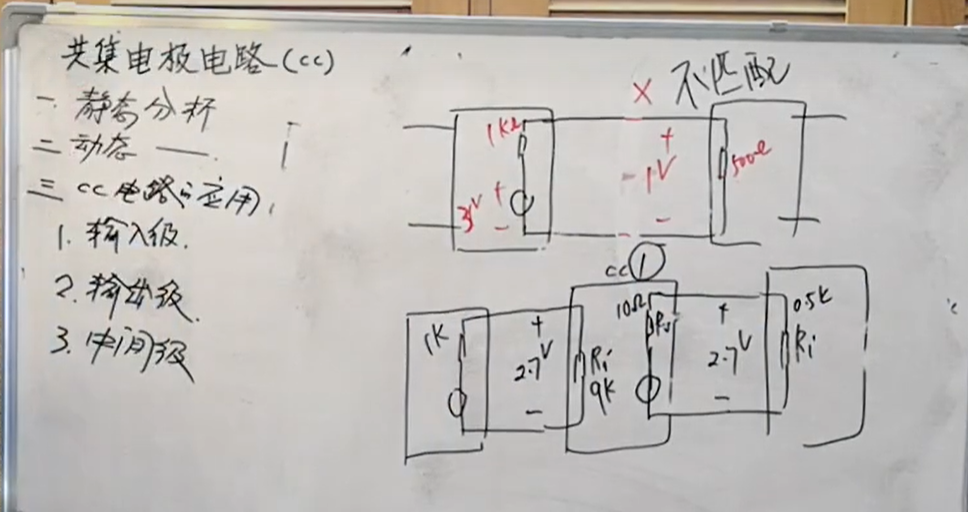 共集电极电路(cc)
一 静态分析
二 动态 ——.
三 cc电路的应用.
1. 输入级.
2. 输出级.
3. 中间级
× 不匹配
1KΩ
+
3V
+
-
- 1V
-
500Ω
cc ①
1K
+
2.7V
-
Ri
9K
10Ω
Ro
+
2.7V
-
0.5K
Ri